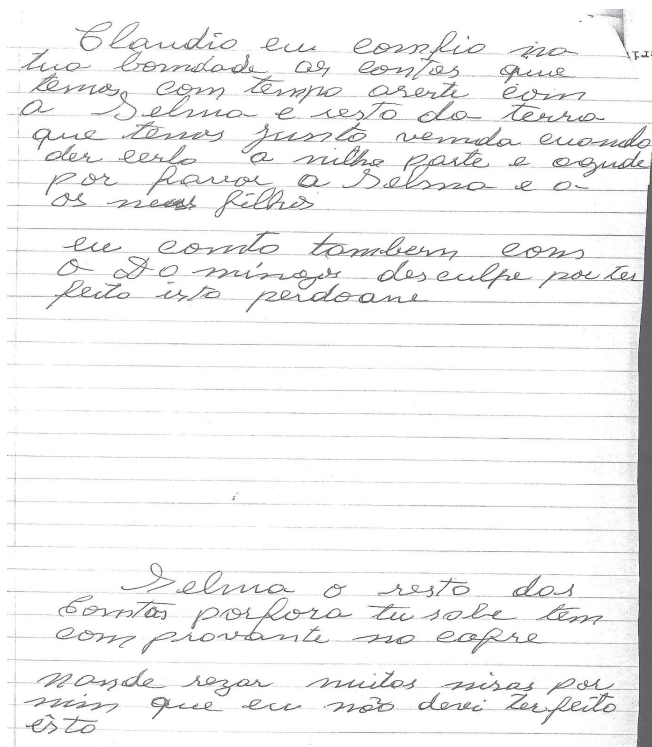 Claudio eu comfio na
tua bomdade as contas que
temos com tempo aserte com
a Selma e resto da terra
que temos junto vemda cuando
der certo a milha parte e agude
por favor a Selma e a
os meus filhos
eu comto tambem com
o Domingos desculpe por ter
feito isto perdoame
Selma o resto das
comtas porfora tu sabe tem
comprovante no cofre
mande rezar muitas misas por
mim que eu não devi ter feito
ésto